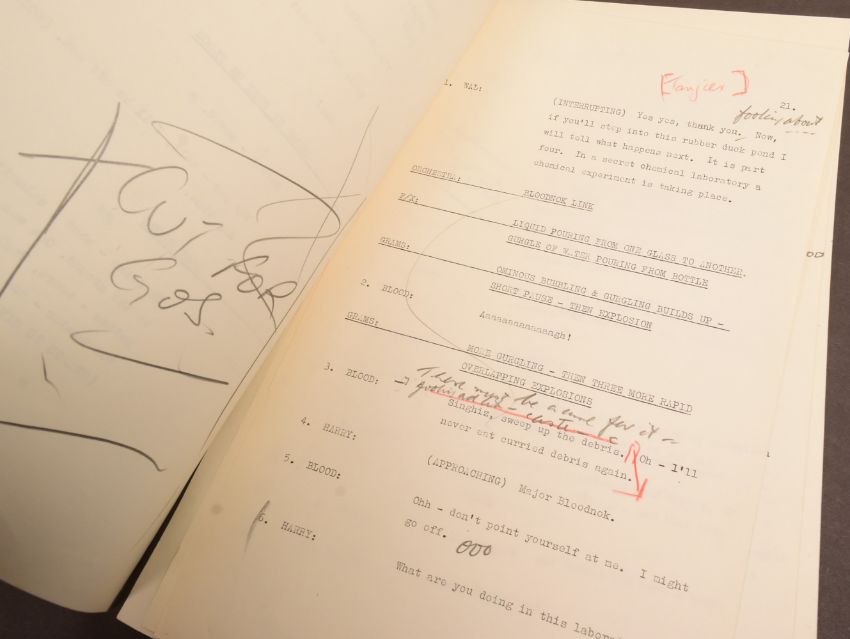 [Tangier]
21.
fooling about
1. WAL:
(INTERRUPTING) Yes yes, thank you. Now,
if you'll step into this rubber duck pond I
will tell what happens next. It is part
four. In a secret chemical laboratory a
chemical experiment is taking place.
ORCHESTRA:
BLOODNOK LINK
F/X:
LIQUID POURING FROM ONE GLASS TO ANOTHER.
GURGLE OF WATER POURING FROM BOTTLE
GRAMS:
OMINOUS BUBBLING & GURGLING BUILDS UP -
SHORT PAUSE - THEN EXPLOSION
2. BLOOD:
Aaaaaaaaaaaaagh!
GRAMS:
MORE GURGLING - THEN THREE MORE RAPID
OVERLAPPING EXPLOSIONS
There must be a cure for it -
3. BLOOD:
Singhiz, sweep up the debris. Oh - I'll
never eat curried debris again.
4. HARRY:
(APPROACHING) Major Bloodnok.
5. BLOOD:
Ohh - don't point yourself at me. I might
go off.
6. HARRY:
What are you doing in this labora
FOR